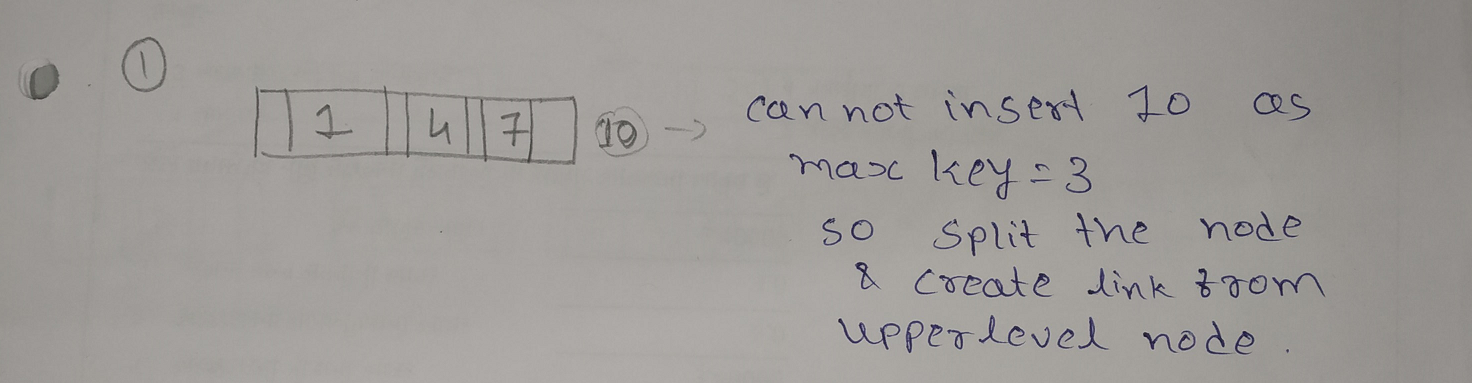 ①
1 4 7 10 → can not insert 10 as
max key = 3
so split the node
& create link from
upper level node.